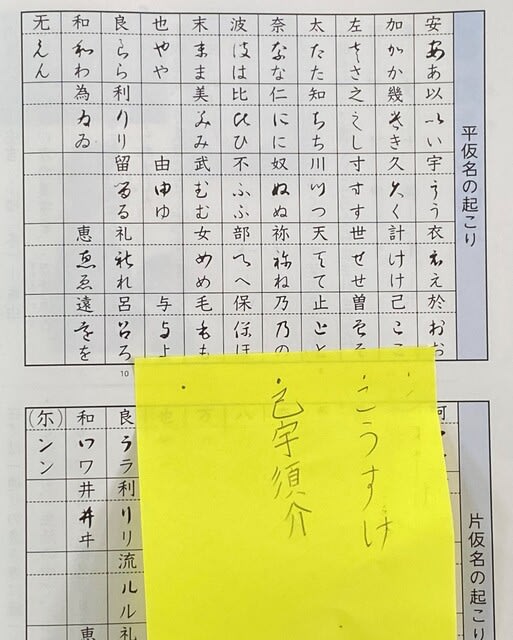 平仮名の起こり
安ああ以いい宇うう衣ええ於おお
加かか幾きき久くく計けけ己ここ
左ささ之しし寸すす世せせ曽そそ
太たた知ちち川つつ天てて止とと
奈なな仁にに奴ぬぬ祢ねね乃のの
波はは比ひひ不ふふ部へへ保ほほ
末まま美みみ武むむ女めめ毛もも
也やや由ゆゆ与よよ
良らら利りり留るる礼れれ呂ろろ
和わわ為ゐゐ恵ゑゑ遠をを
无んん
10
こうすけ
己宇須介
片仮名の起こり
良ララ利リリ流ルル礼
和ワワ井ヰヰ恵
(尓)ンン